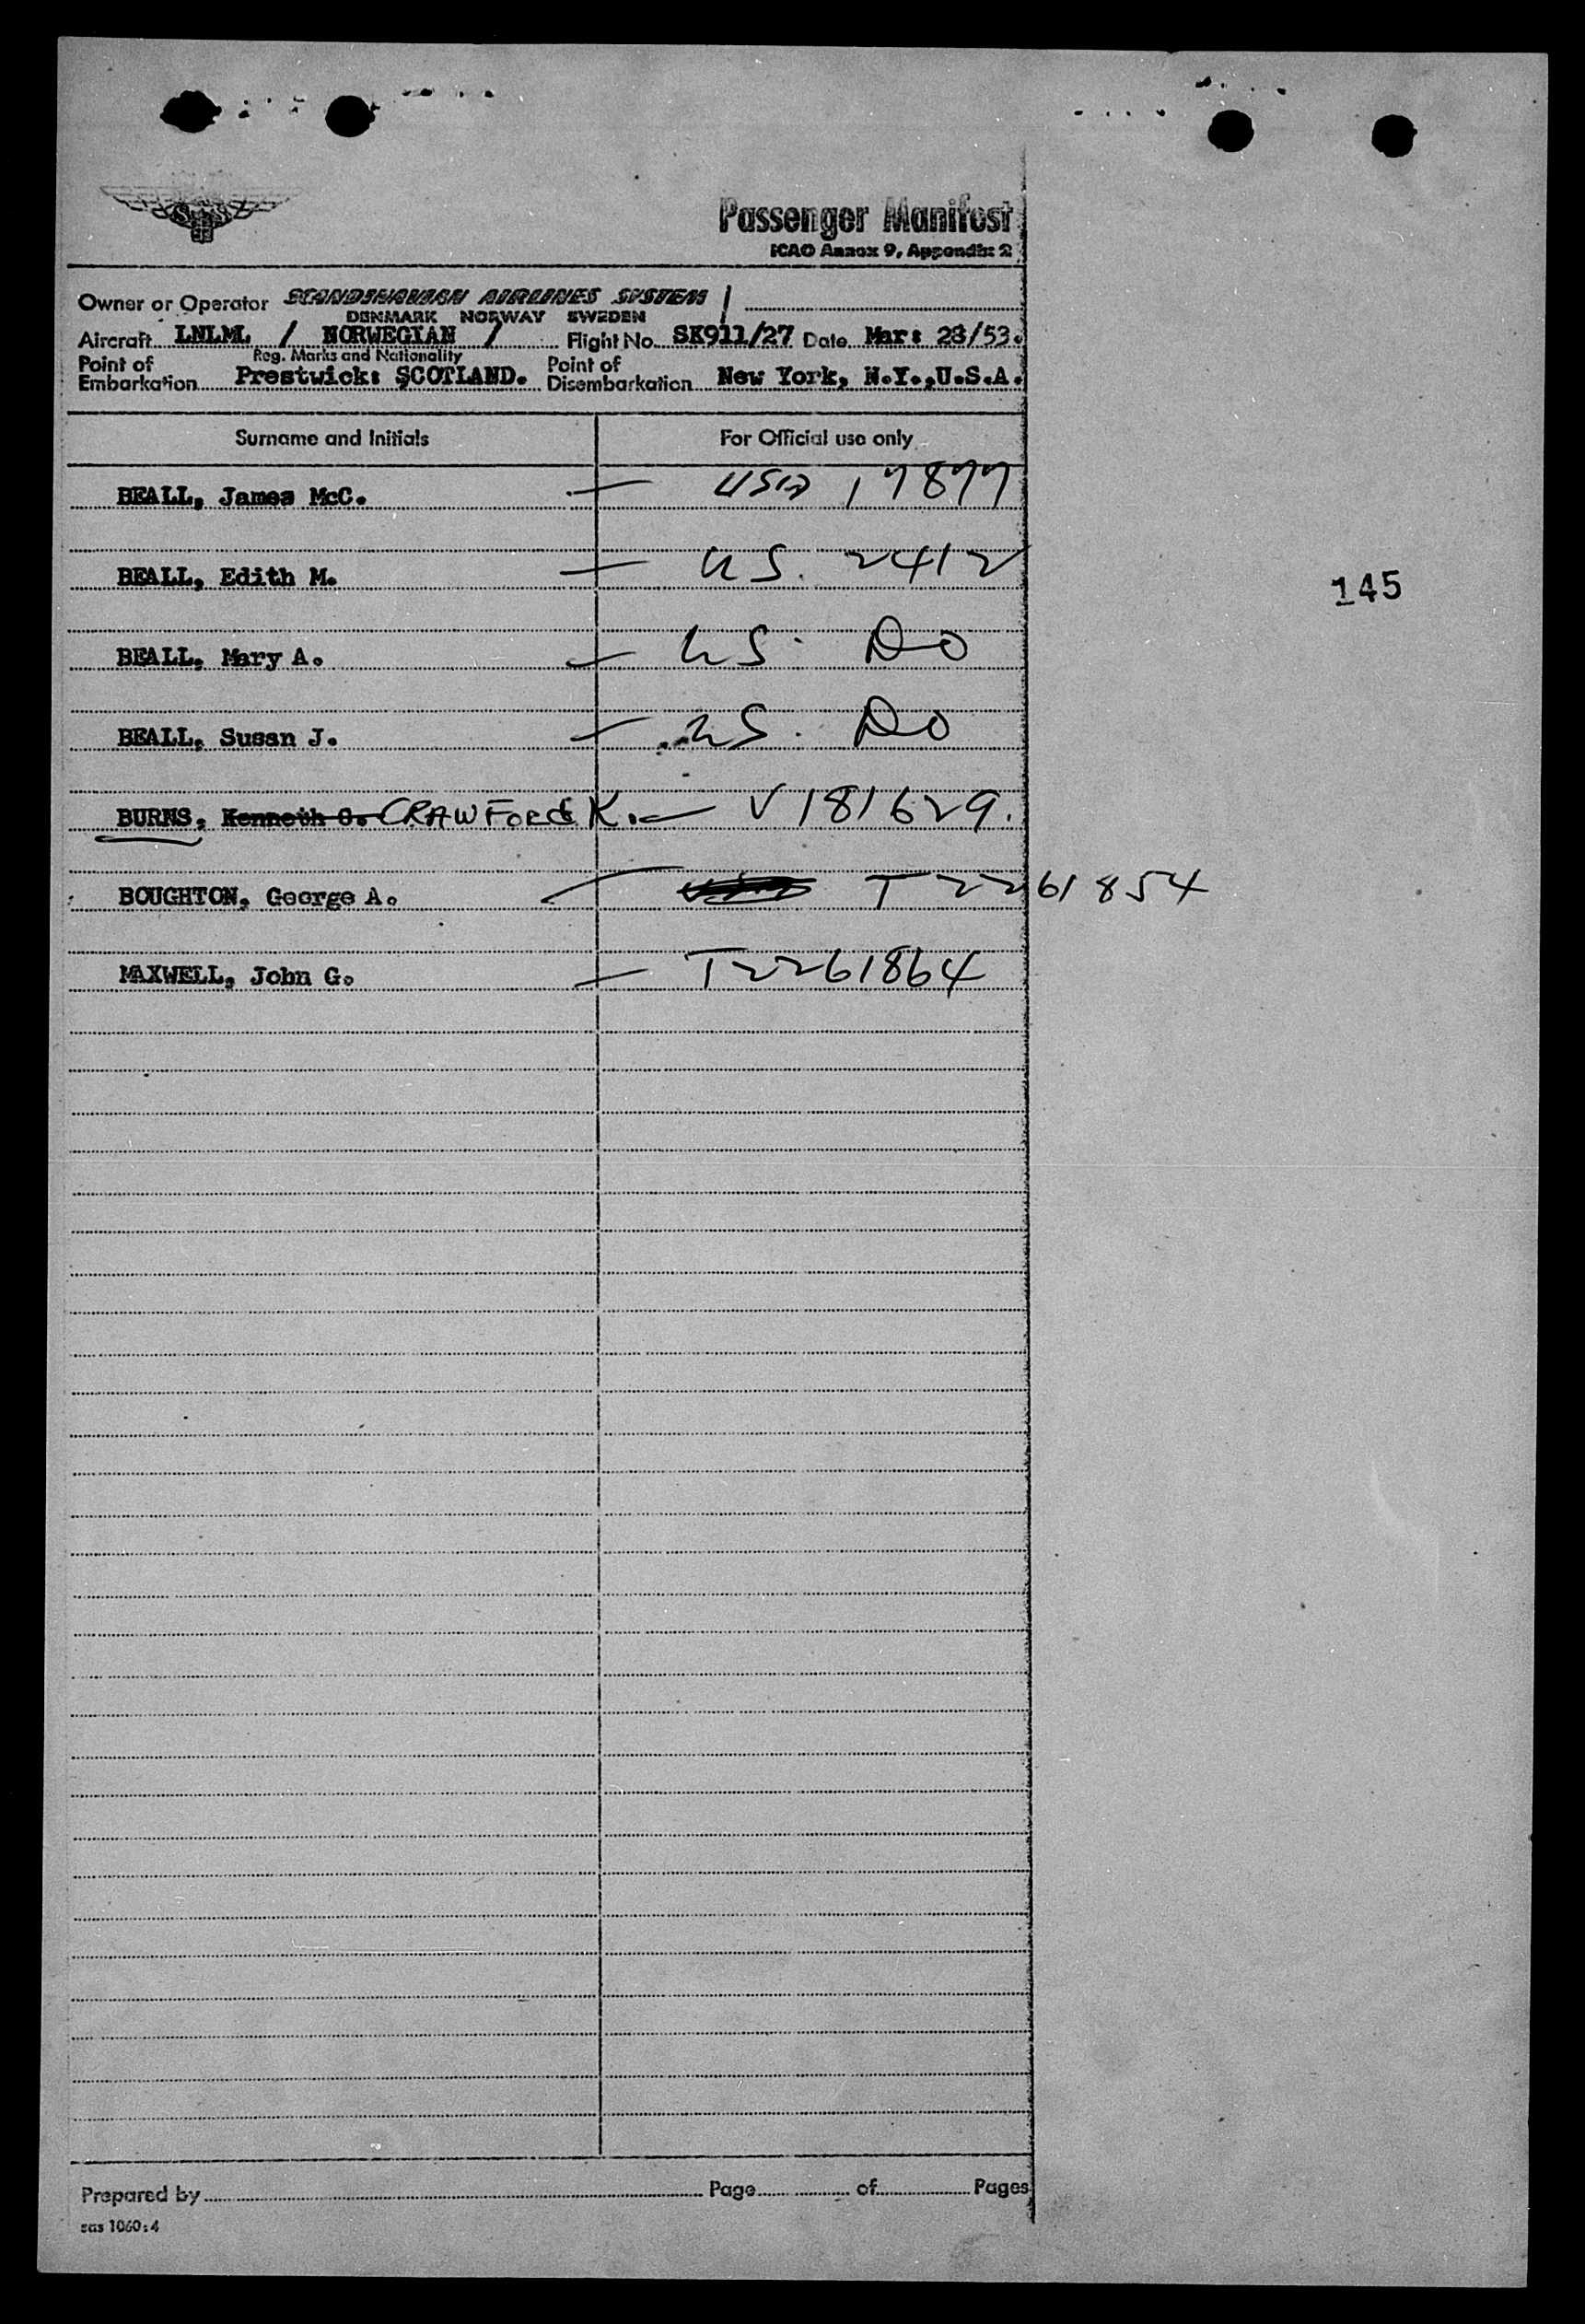 SAS
Passenger Manifest
ICAO Annex 9, Appendix 2
Owner or Operator SCANDINAVIAN AIRLINES SYSTEM /
DENMARK NORWAY SWEDEN
Aircraft LNLML / NORWEGIAN / Flight No. SK911/27 Date Mar: 28/53.
Reg. Marks and Nationality
Point of Embarkation Prestwick: SCOTLAND. Point of Disembarkation New York, N.Y.,U.S.A.
Surname and Initials For Official use only
BEALL, James McC. — USA 17877
BEALL, Edith M. — US. 2412
145
BEALL, Mary A. — US. DO
BEALL, Susan J. — US. DO
BURNS, Kenneth C. CRAWFORD K. — V181629.
BOUGHTON, George A. — T2261854
MAXWELL, John G. — T2261864
Prepared by Page of Pages
sas 1060:4